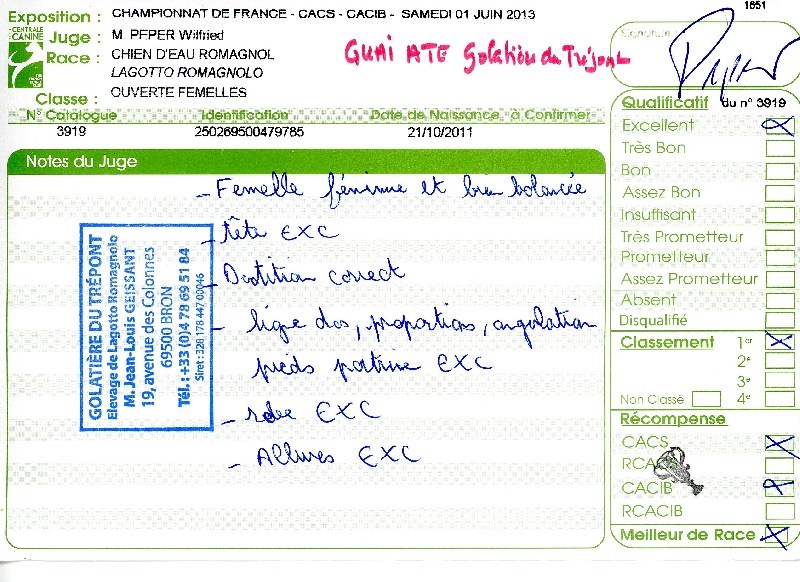 1651
Exposition : CHAMPIONNAT DE FRANCE - CACS - CACIB - SAMEDI 01 JUIN 2013
CENTRALE CANINE
Juge : M. PEPER Wilfried
Race : CHIEN D'EAU ROMAGNOL
LAGOTTO ROMAGNOLO
Classe : OUVERTE FEMELLES
GUAI ATE Golatière du Trépont
Signature
N° Catalogue Identification Date de Naissance à Confirmer
3919 250269500479785 21/10/2011
Notes du Juge
- Femelle féminine et bien balancée
- tête EXC
- Dentition correct
- ligne dos, proportions, angulation
pieds poitrine EXC
- robe EXC
- Allures EXC
GOLATIÈRE DU TRÉPONT
Elevage de Lagotto Romagnolo
M. Jean-Louis GEISSANT
19, avenue des Colonnes
69500 BRON
Tél. : +33 (0)4 78 69 51 84
Siret : 328 178 447 00046
Qualificatif du n° 3919
Excellent X
Très Bon
Bon
Assez Bon
Insuffisant
Très Prometteur
Prometteur
Assez Prometteur
Absent
Disqualifié
Classement 1er X
2e
3e
Non Classé 4e
Récompense
CACS X
RCACS
CACIB X
RCACIB
Meilleur de Race X